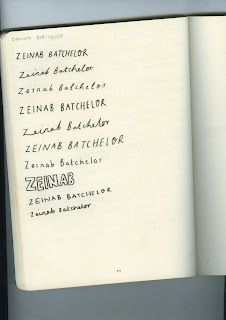 Zeinab Batchelor
ZEINAB BATCHELOR
Zeinab Batchelor
Zeinab Batchelor
ZEINAB BATCHELOR
Zeinab Batchelor
ZEINAB BATCHELOR
Zeinab Batchelor
ZEINAB
ZEINAB BATCHELOR
Zeinab Batchelor